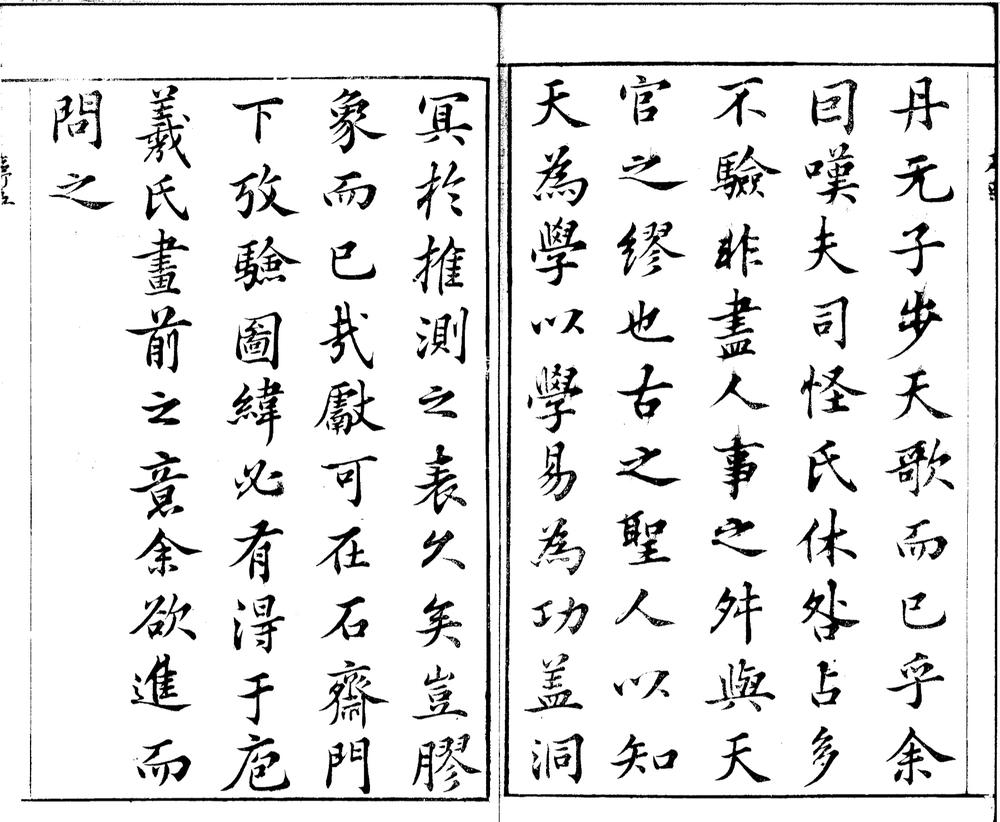 丹无子步天歌而已乎余
因嘆夫司怪氏休咎占多
不驗非盡人事之舛與天
官之繆也古之聖人以知
天為學以學易為功盖洞
冥於推測之表久矣豈膠
象而已㢤獻可在石齋門
下攷驗圖緯必有淂于庖
羲氏畫前之意余欲進而
問之